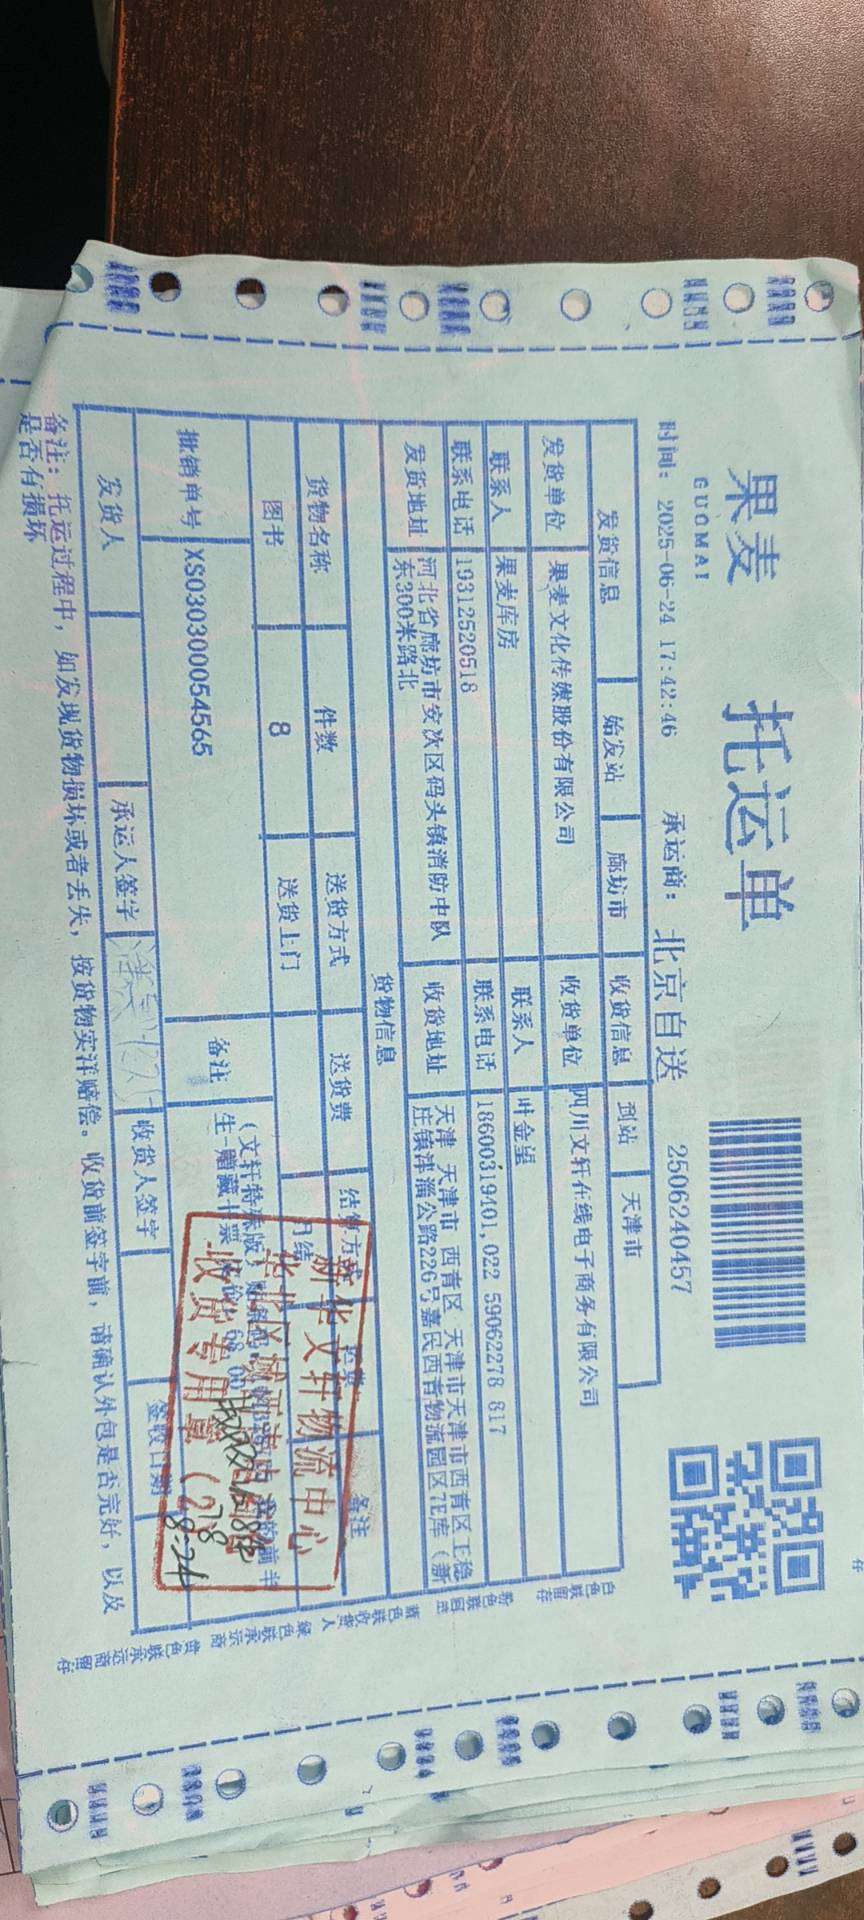 果麦
GUOMAI
托运单
时间： 2025-06-24 17:42:46 承运商： 北京自送 2506240457
发货信息 始发站 廊坊市 收货信息 到站 天津市
发货单位 果麦文化传媒股份有限公司 收货单位 四川文轩在线电子商务有限公司
联系人 果麦库房 联系人 叶金望
联系电话 19312520518 联系电话 18600319401,022 59062278 817
发货地址 河北省廊坊市安次区码头镇消防中队 收货地址 天津 天津市 西青区 天津市天津市西青区王稳
东300米路北 庄镇津淄公路226号嘉民西青物流园区7E库（新
货物信息
货物名称 件数 送货方式 送货费 结体方式 运费 备注
图书 8 送货上门 月结
批销单号 XS030300054565 备注 （文轩特殊版）
生-赠藏书票
新华文轩物流中心
收货专用章（2）
发货人 承运人签字 收货人签字 签收日期
8.24
备注：托运过程中，如发现货物损坏或者丢失，按货物实洋赔偿。收货前签字前，请确认外包是否完好，以及
是否有损坏
白色联留存
粉色联回单
蓝色联收货人
绿色联承运商
黄色联承运商留存